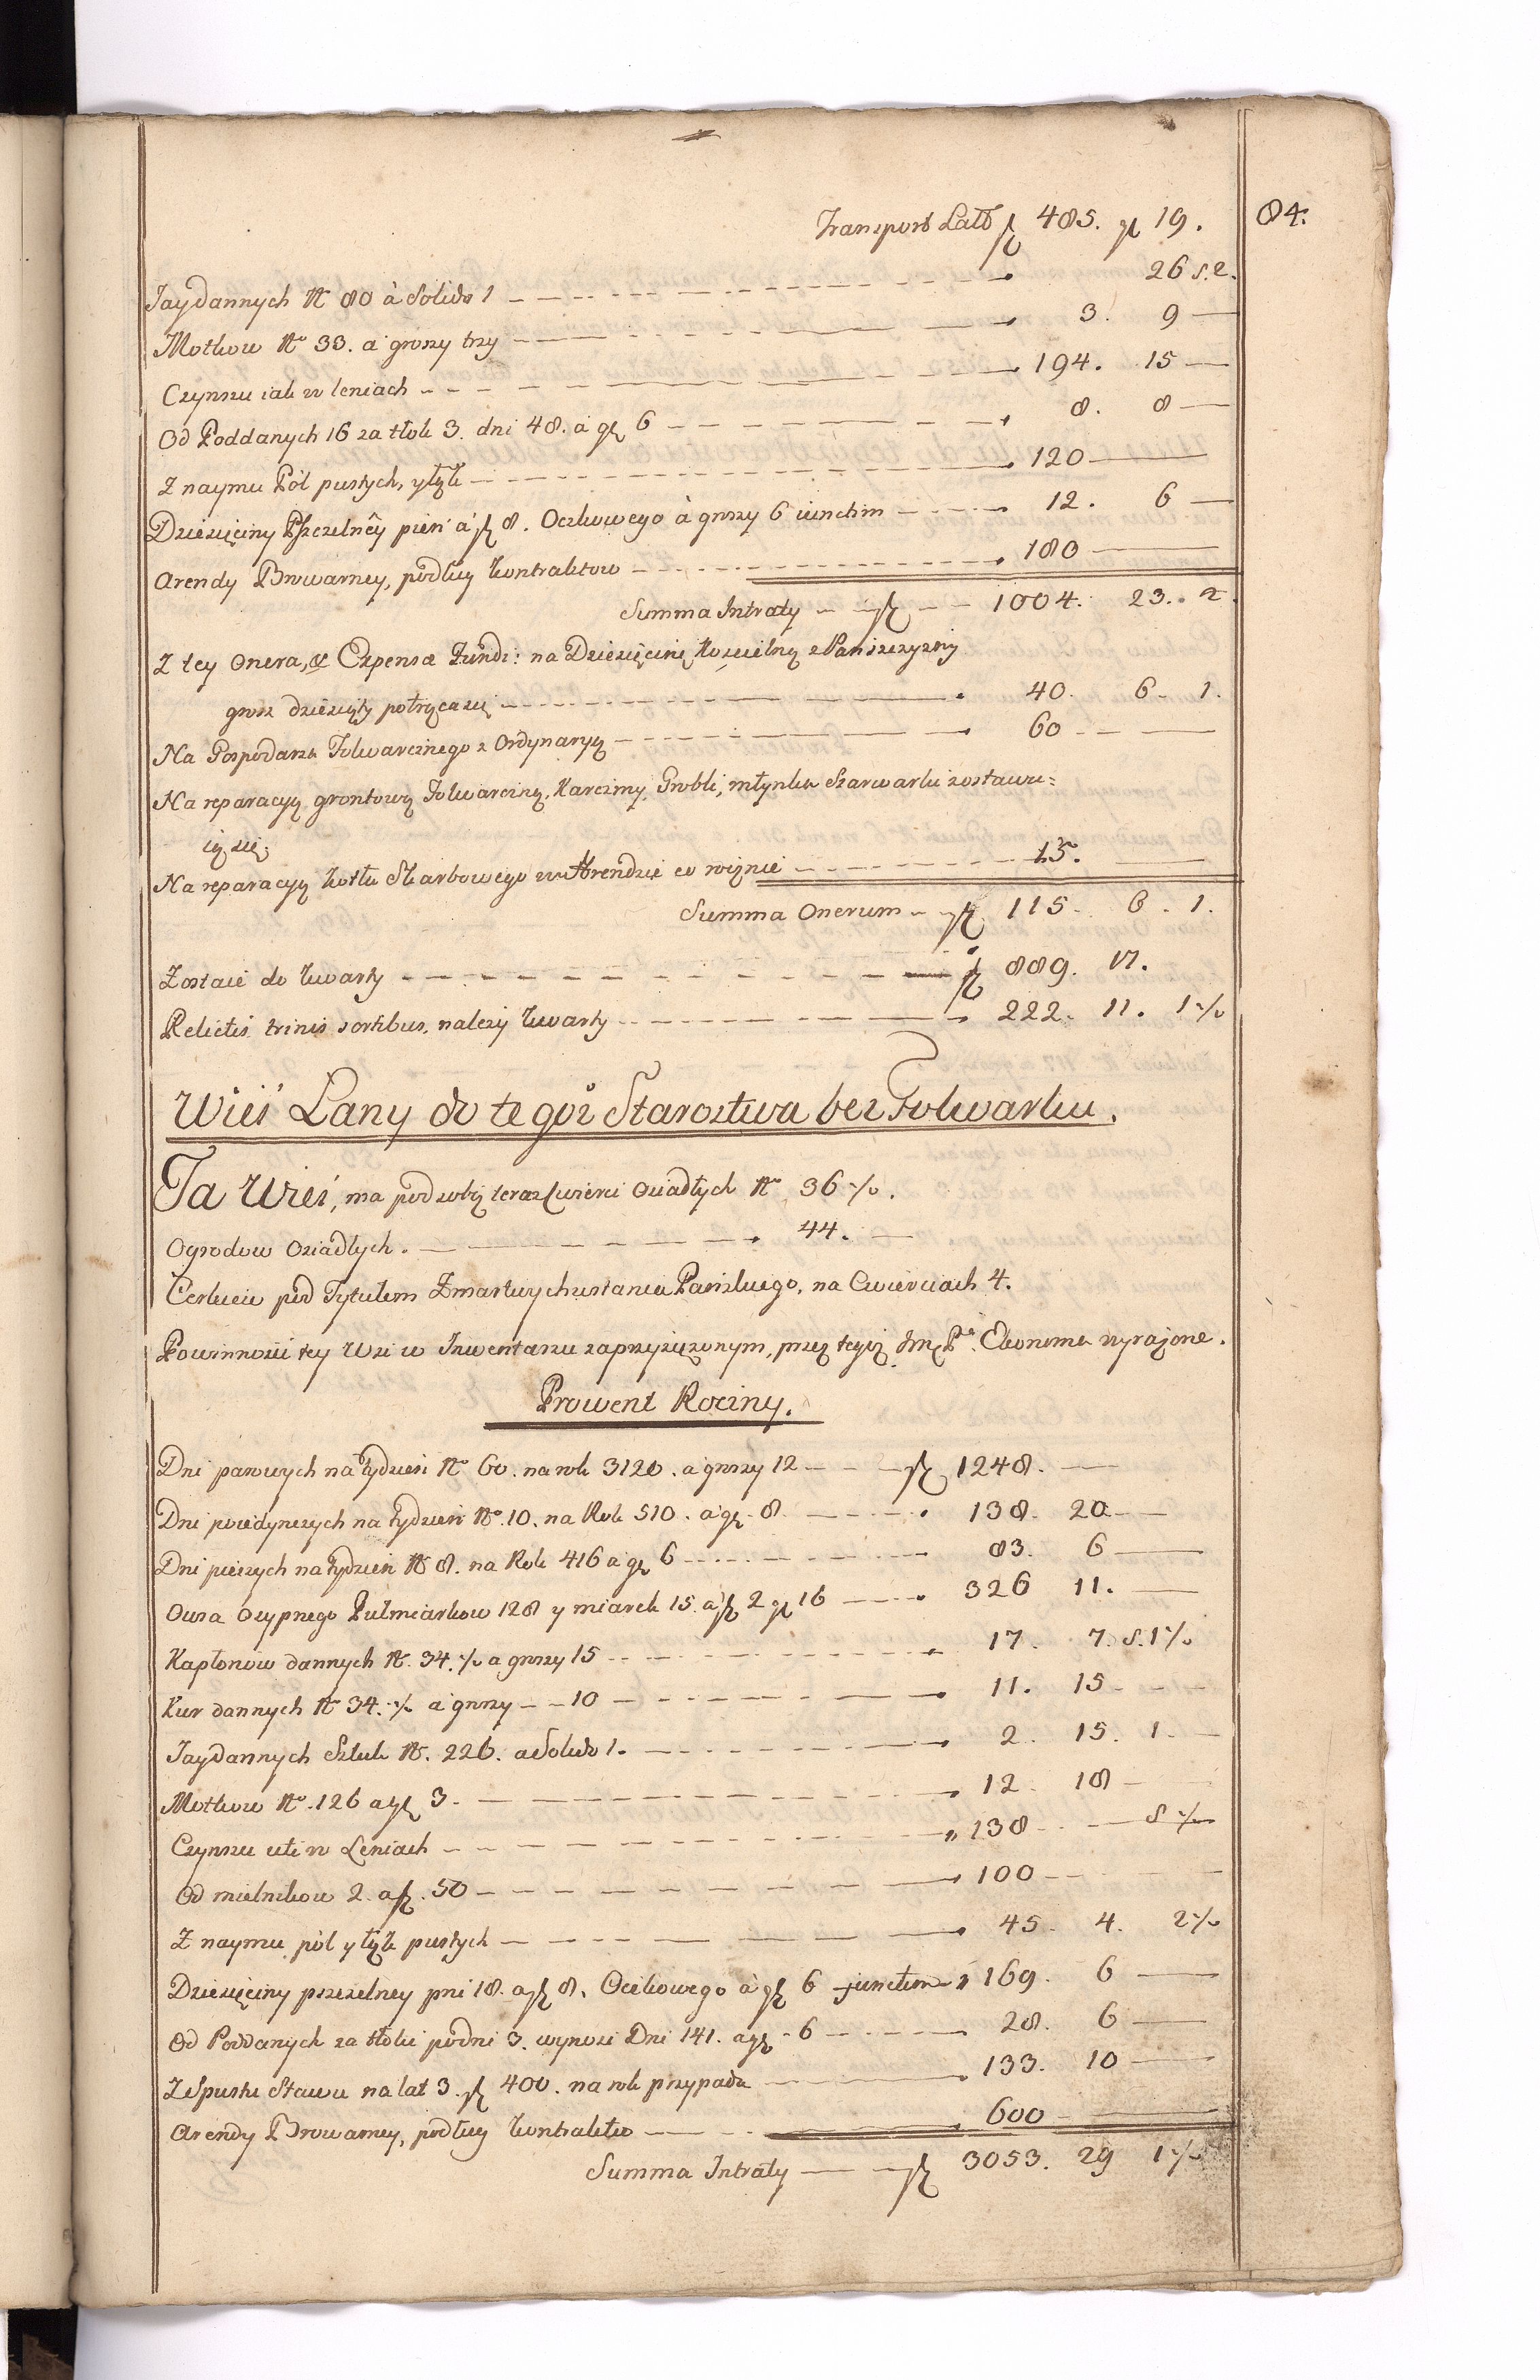 Transport Latus fl 485. gl 19. 84.
Jay dannych N° 80 à Solido 1 26 s. 2.
Motkow N° 33. a groszy trzy 3. 9
Czynszu iak w leniach 194. 15
Od Poddanych 16 za tłok 3. dni 48. a gl 6 8. 8
Z naymu Pól pustych, y łąk 120
Dziesięciny Pszczelney pień à fl 8. Oczkowego à groszy 6 iunctim 12. 6
Arendy Browarney, podług kontraktow 180
Summa Intraty fl 1004. 23. 2.
Z tey Onera, & Expensa Fundi: na Dziesięcinę Koscielną z Panszczyzny
grosz dziesiąty potrąca się 40. 6. 1.
Na Gospodarza Folwarcznego z Ordynaryą 60
Na reparacyą gróntową Folwarczną, Karczmy, Grobli, młynka Szarwarki zostawu=
ią się.
Na reparacyą kotła Skarbowego w Arendzie co rocznie 15.
Summa Onerum fl 115. 6. 1.
Zostaie do kwarty fl 889. 17.
Relictis trinis sortibus, należy kwarty 222. 11. 1 ·/.
Wieś Lany do tegoż Starostwa bez Folwarku.
Ta Wieś, ma pod sobą teraz cwierci osiadłych N° 36 ·/.
Ogrodow osiadłych. 44.
Cerkwie pod Tytułem Zmartwychwstania Pańskiego, na Cwierciach 4.
Powinności tey Wsi w Inwentarzu zaprzysiężonym, przez tegoż Jmć Pa. Ekonoma wyrażone.
Prowent Roczny.
Dni parowych na tydzień N° 60. na rok 3120. a groszy 12 fl 1248.
Dni poiedynczych na tydzień N° 10. na Rok 510. a gl. 8 138. 20
Dni pieszych na tydzień N° 8. na Rok 416 a gl 6 83. 6
Owsa Osypnego Pułmiarkow 128 y miarek 15. a fl 2 gl 16 326 11.
Kapłonow dannych N°. 34. ·/. a groszy 15 17. 7. s. 1 ·/.
Kur dannych N° 34. ·/. a groszy 10 11. 15
Jay dannych Sztuk N°. 226. a Solido 1. 2. 15. 1.
Motkow N°. 126 a gl 3. 12. 18
Czynszu uti w Leniach 138 s ·/.
Od mielnikow 2. a fl. 50 100
Z naymu pól y łąk pustych 45. 4. 2 ·/.
Dziesięciny pszczelney pni 18. a fl 8. Oczkowego à gl 6 junctim 169. 6
Od Poddanych za tłoki po dni 3. wynosi Dni 141. a gl. 6 28. 6
Z Spustu Stawu na lat 3. fl 400. na rok przypada 133. 10
Arendy Browarney, podług kontraktu 600
Summa Intraty fl 3053. 29 1 ·/.